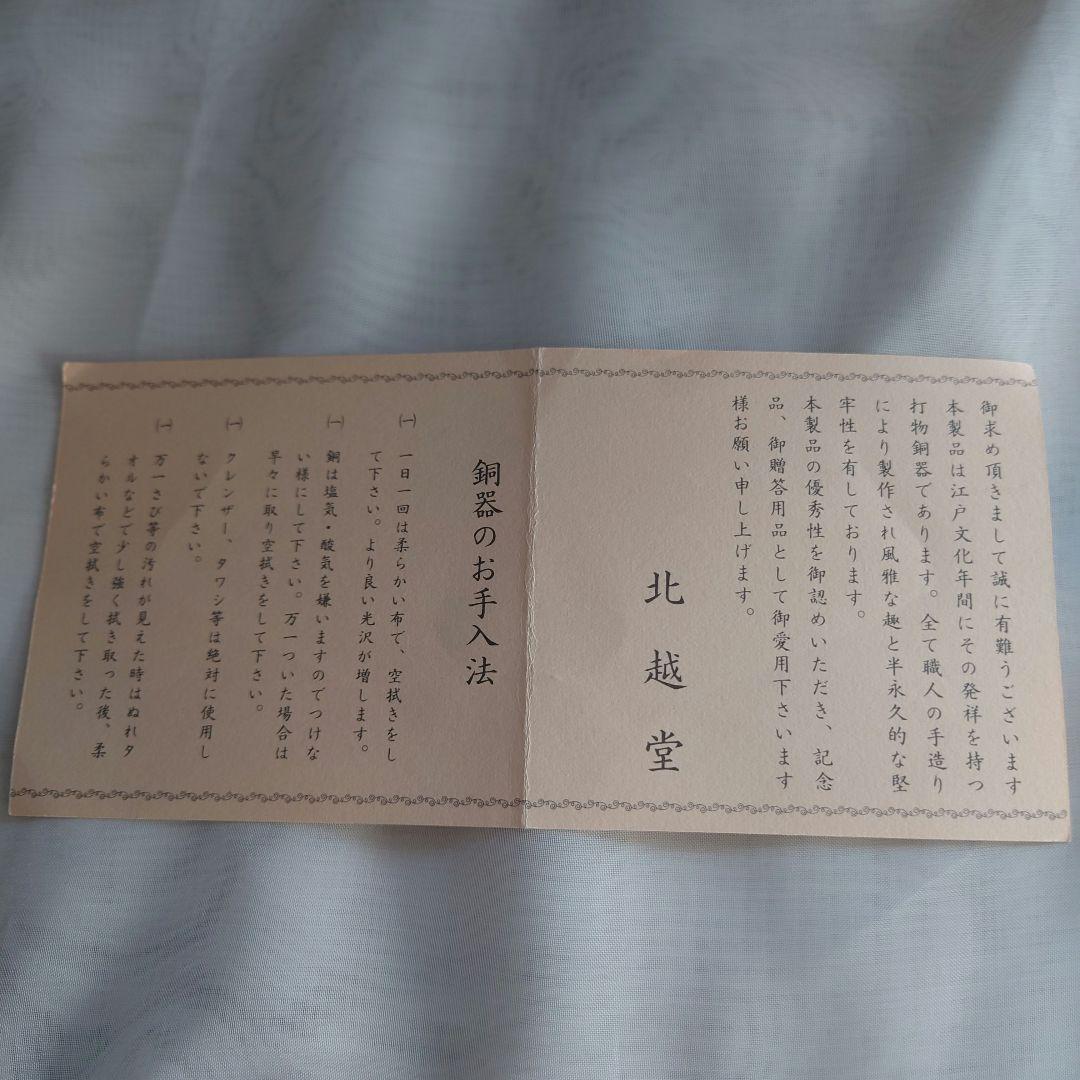 御求め頂きまして誠に有難うございます
本製品は江戸文化年間にその発祥を持つ
打物銅器であります。全て職人の手造り
により製作され風雅な趣と半永久的な堅
牢性を有しております。
本製品の優秀性を御認めいただき、記念
品、御贈答用品として御愛用下さいます
様お願い申し上げます。
北越堂
銅器のお手入法
㈠ 一日一回は柔らかい布で、空拭きをし
て下さい。より良い光沢が増します。
㈠ 銅は塩気・酸気を嫌いますのでつけな
い様にして下さい。万一ついた場合は
早々に取り空拭きをして下さい。
㈠ クレンザー、タワシ等は絶対に使用し
ないで下さい。
㈠ 万一さび等の汚れが見えた時はぬれタ
オルなどで少し強く拭き取った後、柔
らかい布で空拭きをして下さい。